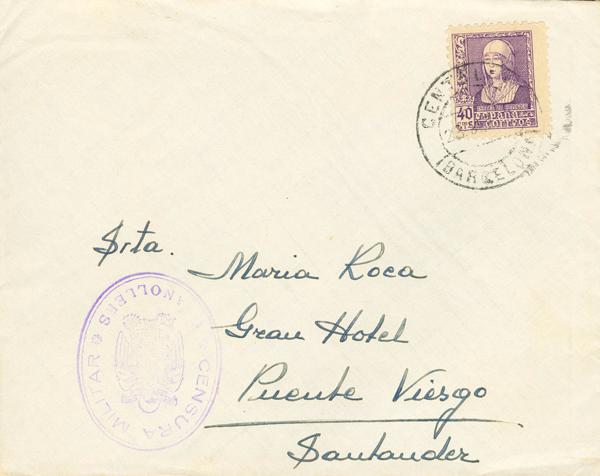 40
CTS
ESPAÑA
CORREOS
(BARCELONA)
Srta.
Maria Roca
Gran Hotel
Puente Viesgo
Santander
CENSURA MILITAR